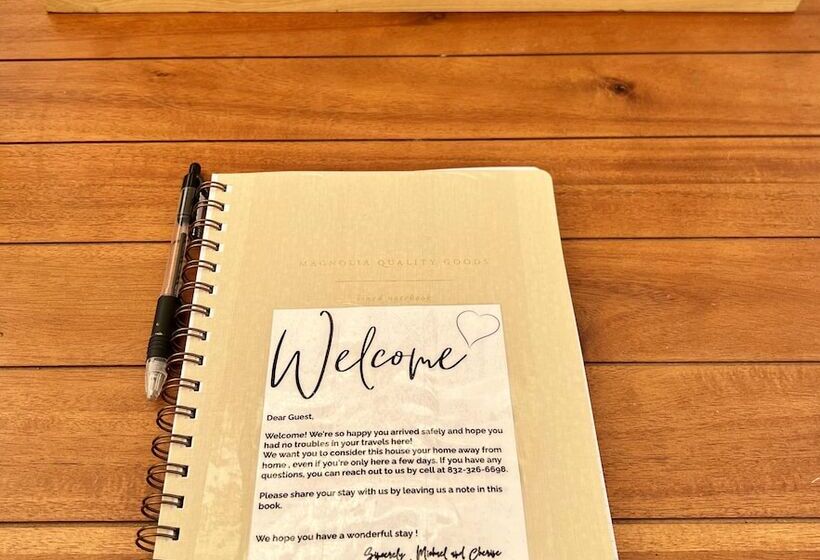 MAGNOLIA QUALITY GOODS
lined notebook
Welcome
Dear Guest,
Welcome! We're so happy you arrived safely and hope you
had no troubles in your travels here!
We want you to consider this house your home away from
home , even if you're only here a few days. If you have any
questions, you can reach out to us by cell at 832-326-6698.
Please share your stay with us by leaving us a note in this
book.
We hope you have a wonderful stay !
Sincerely, Michael and Cherise